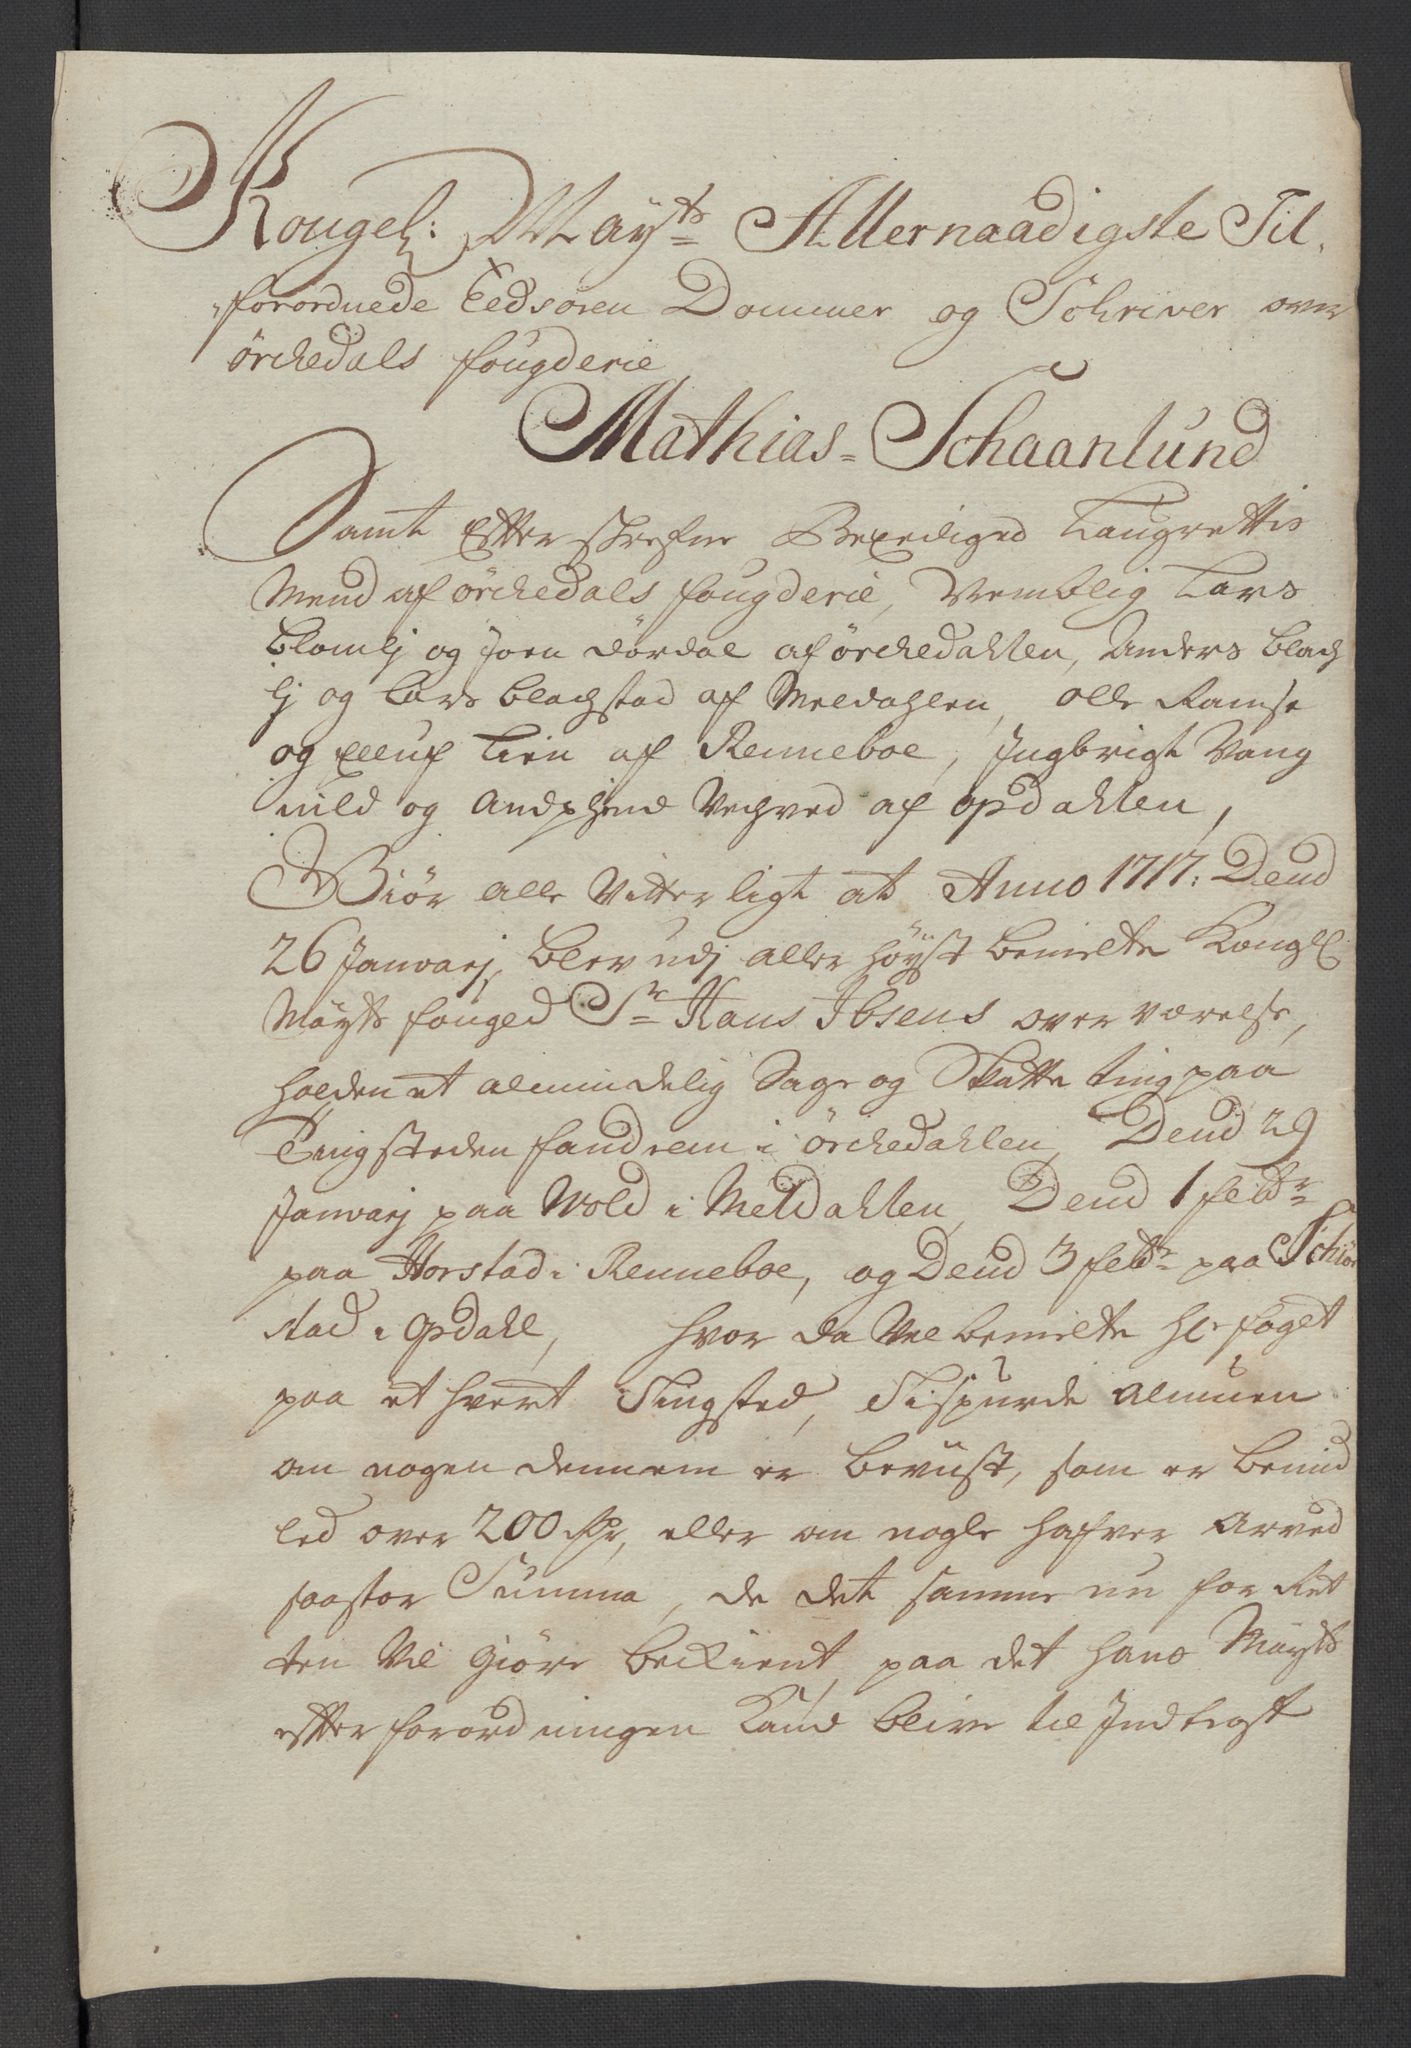 Kongel: Mayts Allernaadigste Til,
forordnede Eedsoren Dommer og Schriver over
örckedals fougderie
Mathias Schaanlund
Samt Effterschrefne Beeedigede Laugrettis
Mend af örckedals fougderie, Nemblig Lars
Blomlj og Joen dördal af örckedahlen, Anders Black
lj og Lars Blachstad af Meldahlen, Olle Ramse
og Elluf Lien af Renneboe, Ingbrigt Vang
nild og Vechved af opdahlen,
Giör alle Vitterligt at Anno 1717. Dend
26 Januarj, blev udj aller höyst bemelte Kongl
Mayts fouged Sr Hans Ibsens over værelse,
holden et almindelig Sage og Skatte ting paa
Tingsteden fandrem i örckedahlen, Dend 29
Januarj paa Wold i Meldahlen, Dend 1 febr
paa Horstad i Renneboe, og Dend 3 febr paa Schiör
stad i Opdahl, hvor da Vel bemelte Hr foget
paa et hvert Tingsted, Tilspurde Almuen
om nogen dennem er beviist, som er bemid
led over 200 Rdr, eller om nogle hafver Arved
saa stor Summa, de det samme nu for Ret
ten Vil giöre beckient, paa det hans Mayts
effter forordningen Kand blive til Indtegt